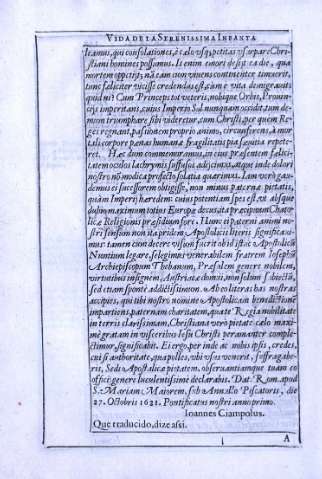 VIDA DE LA SERENISSIMA INFANTA
teamus, qui consolationes, è cælo usq; petitas usurpare Chri-
stiani homines possumus. Is enim amori desijt ea die, qua
mortem oppetijt; nã eam cùm viuens continenter timuerit,
tunc fæliciter vicisse credendus est, cùm è vita demigrauit:
quid ni? Cum Princeps tot veteris, nobique Orbis, Prouin-
cijs imperitans, cuius Imperio Sol nunquam occidit, tum de-
mum triumphare sibi videretur, cum Christi, per quem Re-
ges regnant, passionẽ proprio animo, circunferens, à mor
tali corpore pænas humanæ fragilitatis pia sæuitia repete-
ret. Hæc dum commemoramus, in eius præsentem fælici-
tatem oculis lachrymis suffusos adijcimus, atque inde dolori
nostro nõ modica profecto solatia quærimus. Iam verò gau-
demus ei sucessorem obtigisse, non minus paternæ pietatis,
quàm Imperij hæredem: cuius potentiam spes est vt absque
dubio maximum totius Europæ decus, ita præsidium Chatho-
licæ Religionis præsidium fore. Hunc ei paterni animi no-
stri sensum non ita pridem Apostolicis literis significaui-
mus: tamen cùm decere visum fuerit obid istac Apostolicũ
Nuntium legare, selegimus venerabilem fratrem Iosephũ
Archiepiscopum Thebanum, Præsulem genere nobilem,
virtutibus insignem, Austriacæ domui, non solum subiectũ,
sed etiam sponte addictissimum. Ab eo literas has nostras
accipies, qui tibi nostro nomine Apostolicam benedictionẽ
impartiens, paternam charitatem, quatẽ Regiã nobilitatẽ
in terris clarissimam, Christiana verò pietate cælo maxi-
mè gratam in visceribus Iesu Christi peramanter comple-
ctimur, significabit. Ei ergo, perinde ac nobis ipsis, credes,
cui si authoritate, qua polles, vbi vsus venerit, suffragabe-
ris, Sedis Apostolicæ pietatem, obseruantiamque tuam eo
officij genere luculentissimè declarabis. Dat. Rom. apud
S. Mariam Maiorem, sub Annullo Piscatoris, die
27. Octobris 1621. Pontificatus nostri anno primo.
Ioannes Ciampolus.
Que traducido, dize assi.
A